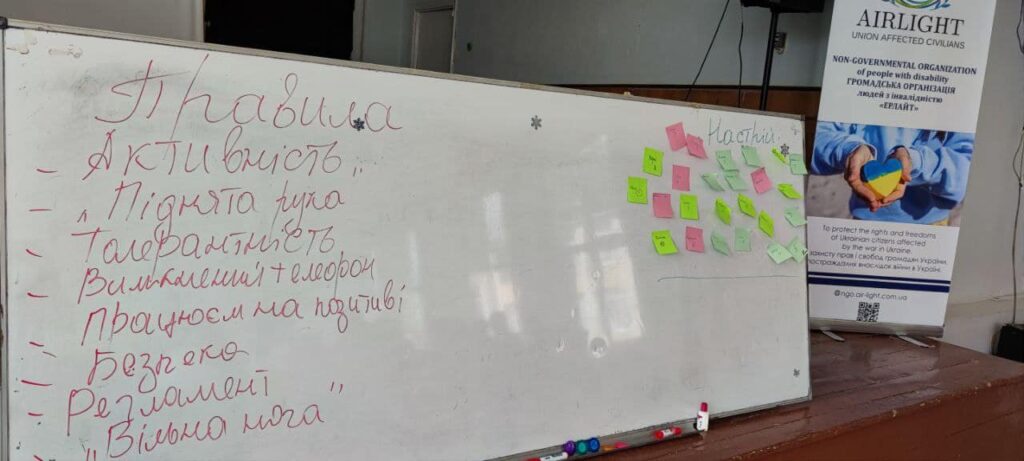 Правила
- Активність
- „Піднята рука"
- Толерантність
- Вимкнений телефон
- Працюєм на позитиві
- Безпека
- Регламент
- „Вільна нога"
Настрій
AIRLIGHT
UNION AFFECTED CIVILIANS
NON-GOVERNMENTAL ORGANIZATION
of people with disability
ГРОМАДСЬКА ОРГАНІЗАЦІЯ
людей з інвалідністю
«ЕРЛАЙТ»
To protect the rights and freedoms
of Ukrainian citizens affected
by the war in Ukraine.
захисту прав і свобод громадян України,
постраждалих внаслідок війни в Україні.
@ngo.air-light.com.ua